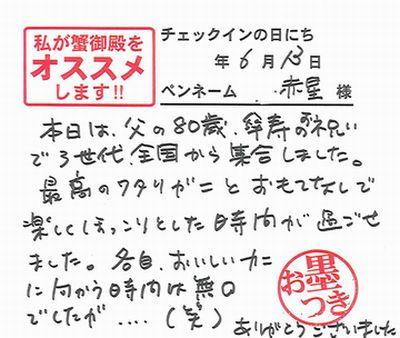 私が蟹御殿を
オススメ
します!!
チェックインの日にち
年6月13日
ペンネーム 赤星 様
本日は、父の80歳、傘寿のお祝い
で3世代、全国から集合しました。
最高のワタリガニとおもてなしで
楽しくほっこりとした時間が過ごせ
ました。各自、おいしいカニ
に向かう時間は無口
でしたが....(笑)
ありがとうございました
お墨つき